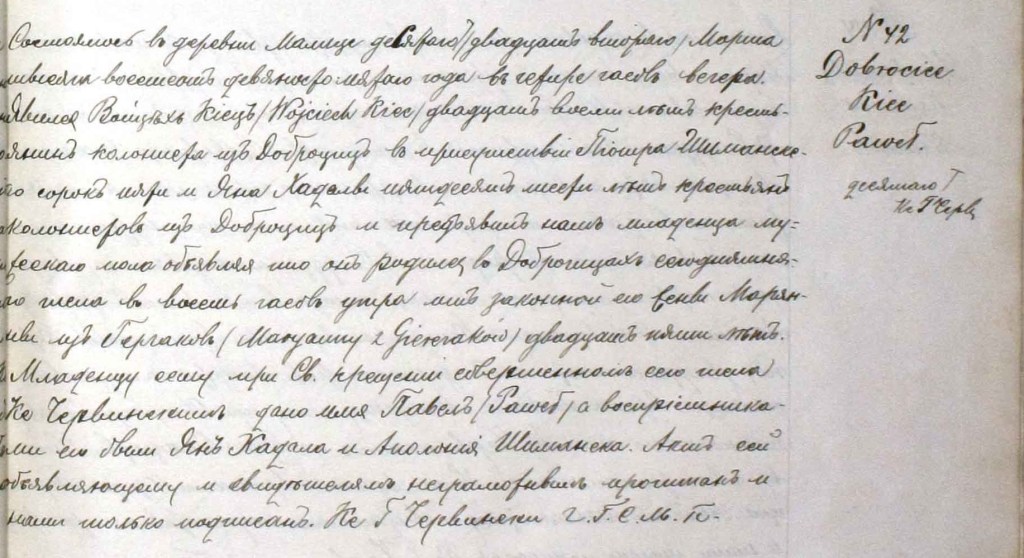 Состоялось въ деревни Малыце десятаго/двадцать втораго/ Марта
восемсотъ девяносто пятаго года въ четыре часовъ вечера.
Явился Войцѣхъ Кіецъ /Wojciech Kiec/ двадцать восемъ лѣтъ кресть-
янинъ колониста изъ Доброцицъ въ присутствіи Піотра Шиманска-
го сорокъ пяти и Яна Хадалы пятдесятъ шести лѣтъ крестьянъ
колонистовъ изъ Доброцицъ и предъявилъ намъ младенца му-
ескаго пола объявляя что онъ родился въ Доброцицахъ сегодняшня-
го числа въ восемь часовъ утра отъ законной его жены Марян-
ны изъ Гергаковъ /Maryanny z Giergaków/ двадцать пяти лѣтъ.
Младенцу сему при Св. крещеніи совершенномъ сего числа
Кс Червинскимъ дано имя Павелъ /Paweł/ а воспріемника-
ми его были Янъ Хадала и Аполонія Шиманска. Актъ сей
объявляющему и свидѣтелямъ неграмотнымъ прочитанъ и
нами только подписанъ. Кс Г Червински
N 42
Dobrocice
Kiec
Paweł.
десятаго Г
Кс Г Черв